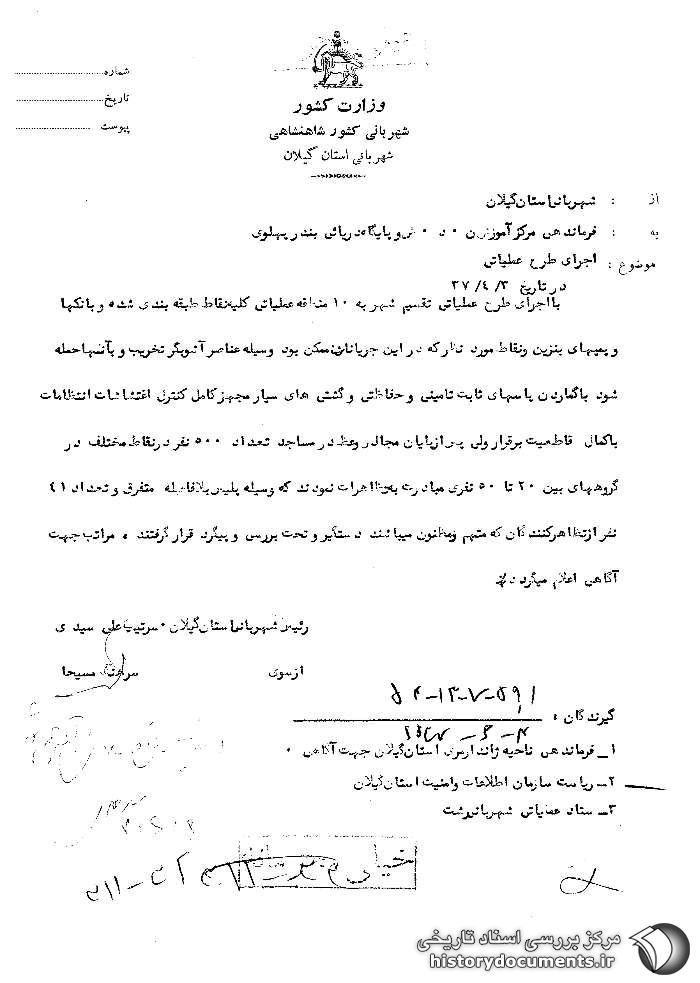 وزارت کشور
شهربانی کشور شاهنشاهی
شهربانی استان گیلان
شماره
تاریخ
پیوست
از : شهربانی استان گیلان
به : فرماندهی مرکز آموزش ن ۰ د ۰ ش و پایگاه دریائی بندر پهلوی
موضوع : اجرای طرح عملیاتی
در تاریخ ۳۷/۴/۳
با اجرای طرح عملیاتی تقسیم شهر به ۱۰ منطقه عملیاتی کلیه نقاط طبقه بندی شده و بانکها
و پمپهای بنزین و نقاط مورد نظر که در این جریانات ممکن بود وسیله عناصر آشوبگر تخریب و یا به آنها حمله
شود با گماردن پاسهای ثابت تامینی و حفاظتی و گشتی های سیار مجهز کامل کنترل اغتشاشات انتظامات
با کمال قاطعیت برقرار ولی پس از پایان مجالس وعظ در مساجد تعداد ۵۰۰ نفر در نقاط مختلف در
گروههای بین ۲۰ تا ۵۰ نفری مبادرت به تظاهرات نمودند که وسیله پلیس بلافاصله متفرق و تعداد ۴۱
نفر از تظاهرکنندگان که متهم و مظنون میباشند دستگیر و تحت بررسی و پیگرد قرار گرفتند ۰ مراتب جهت
آگاهی اعلام میگردد
رئیس شهربانی استان گیلان ۰ سرتیپ علی سیدی
از سوی
مسیحا
گیرندگان :
۱ـ فرماندهی ناحیه ژاندارمری استان گیلان جهت آگاهی ۰
۲ـ ریاست سازمان اطلاعات وامنیت استان گیلان
۳ـ ستاد عملیاتی شهربانی رشت
۳۱۱
مرکز بررسی اسناد تاریخی
historydocuments.ir